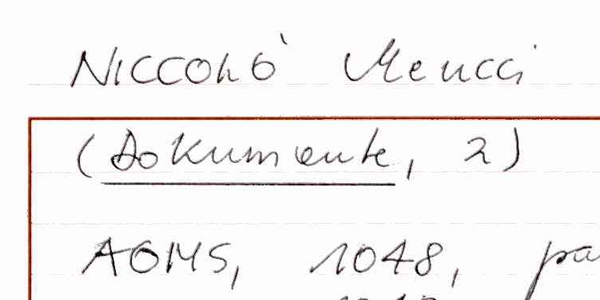 NICCOLÒ Meucci
(Dokumente, 2)
AOMS, 1048,